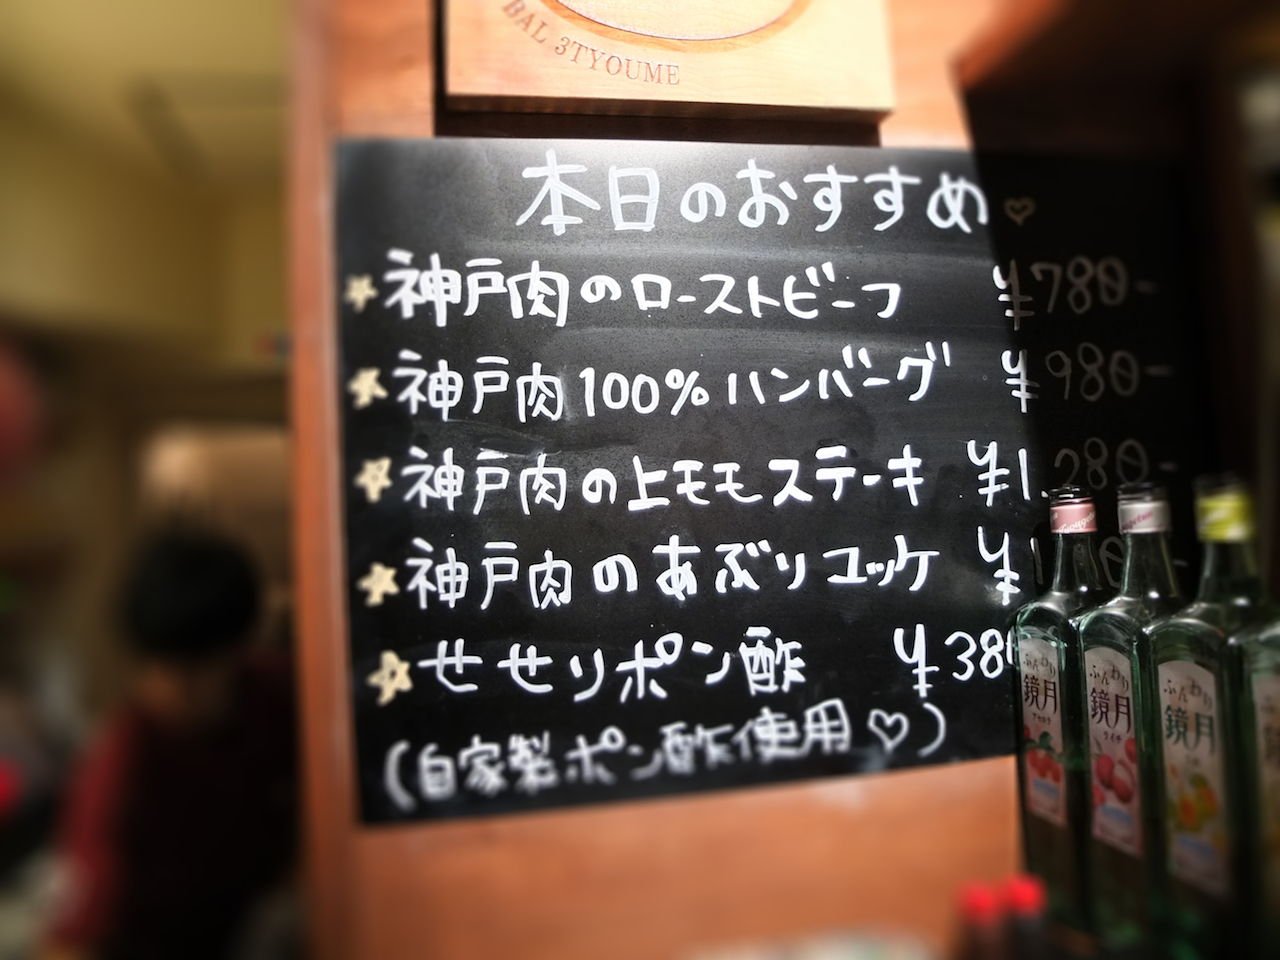 BAL 3TYOUME
本日のおすすめ♡
☆神戸肉のローストビーフ ¥780-
☆神戸肉100%ハンバーグ ¥980-
☆神戸肉の上モモステーキ ¥1.280-
☆神戸肉のあぶりユッケ
☆せせりポン酢 ¥380
(自家製ポン酢使用♡)
ふんわり 鏡月 アセロラ
ふんわり 鏡月 ライチ
ふんわり 鏡月